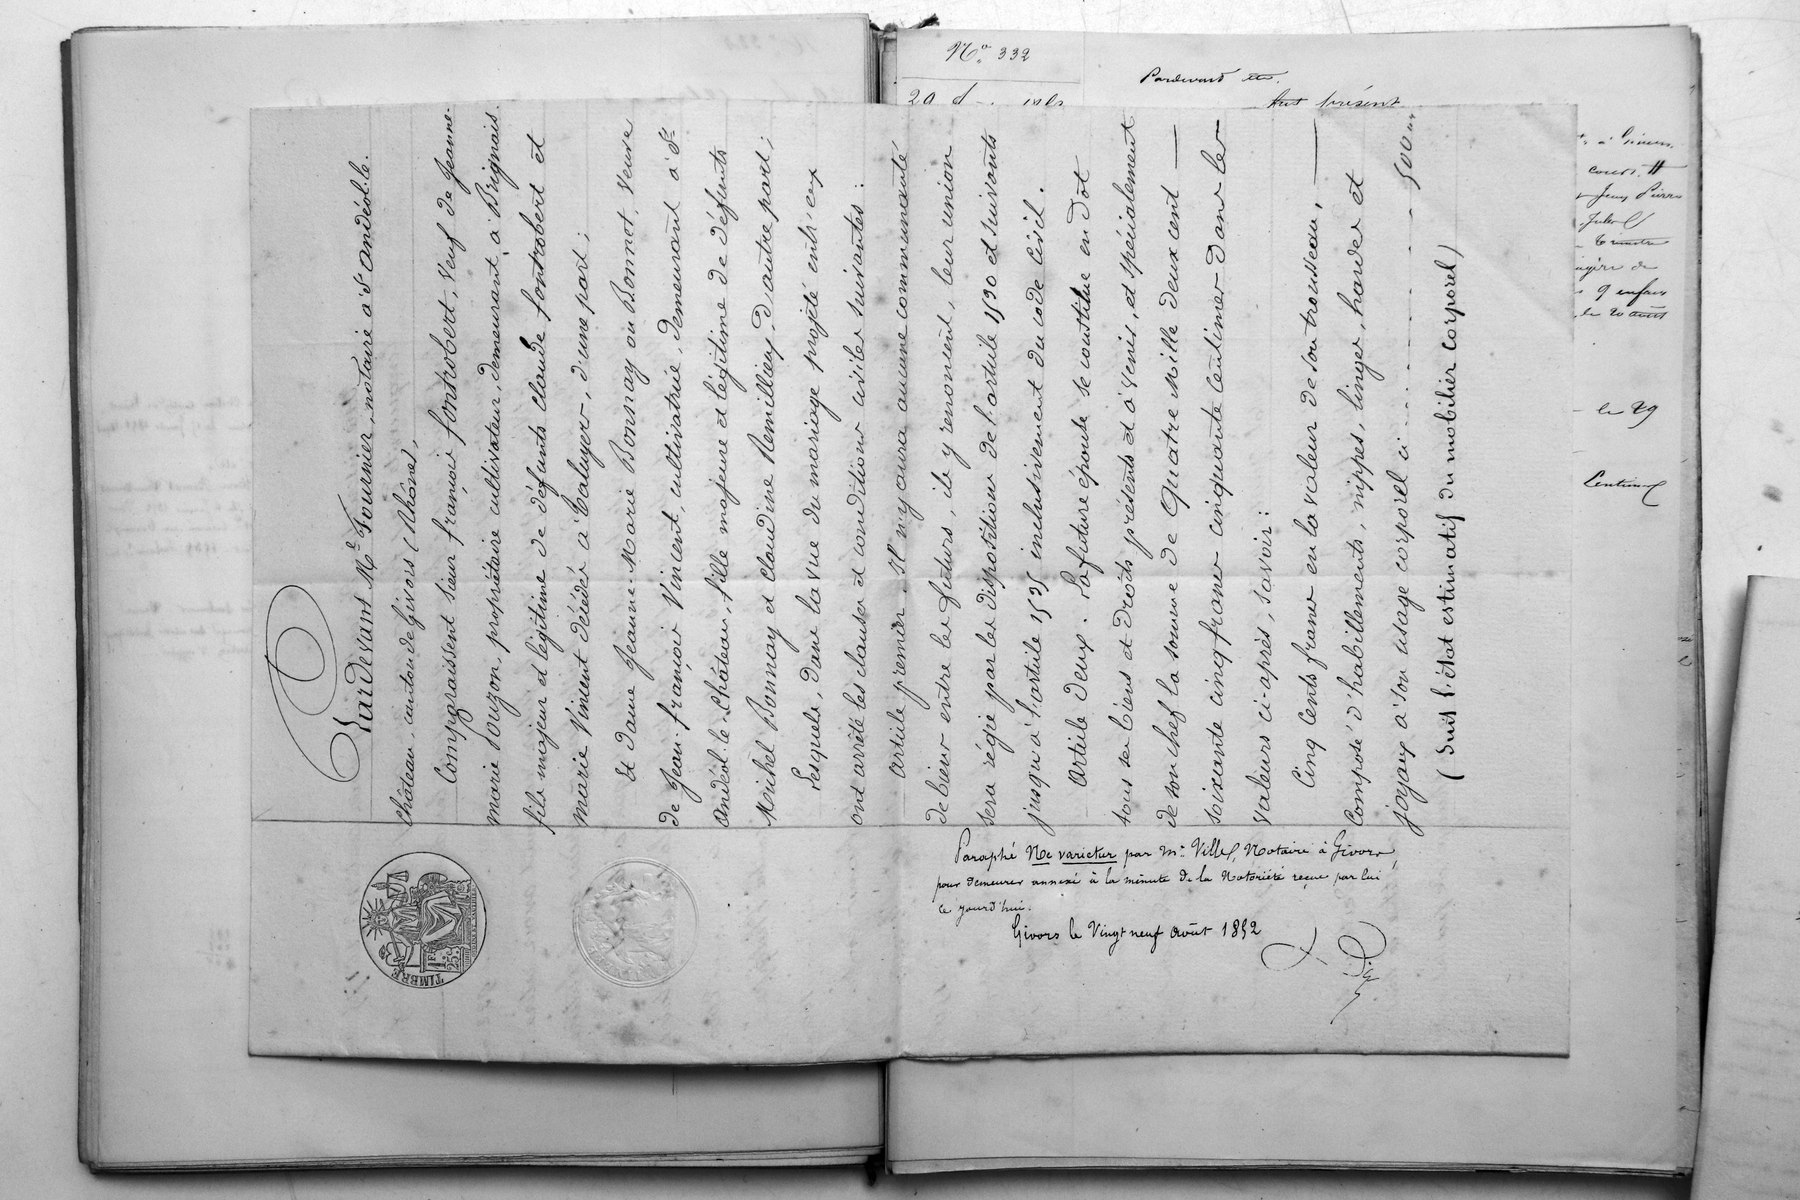 N.° 332
Pardevant etc.
Pardevant M.e Fournier, notaire à S.t Andéol-le-
Château, canton de Givors (Rhône),
Comparaissent Sieur françois fontrobert, veuf de Jeanne
marie Bouzon, propriétaire cultivateur, demeurant à Brignais,
fils majeur et légitime de défunts claude fontrobert et
marie Vincent décédés à Taluyers, d'une part;
Et Dame Jeanne-Marie Bonnay ou Bonnet, veuve
de Jean-françois Vincent, cultivatrice, demeurant à S.t
Andéol-le-Château, fille majeure et légitime de défunts
Michel Bonnay et claudine Remillieux, d'autre part;
Lesquels, dans la vue du mariage projeté entr'eux
ont arrêté les clauses et conditions civiles suivantes:
Article premier. Il n'y aura aucune communauté
de biens entre les futurs, ils y renoncent, leur union
sera régie par les dispositions de l'article 1530 et suivants
jusqu'à l'article 1535 inclusivement du code Civil.
Article deux. La future épouse se constitue en dot
tous ses biens et droits présents et à venir, et spécialement
de son chef la somme de Quatre mille deux cent
soixante cinq francs cinquante centimes dans les
valeurs ci-après, savoir:
Cinq cents francs en la valeur de son trousseau,
Composé d'habillements, nippes, linges, hardes et
joyaux à son usage corporel ci 500
(Suit l'état estimatif du mobilier corporel)
Paraphé Ne varietur par M.e Villes, Notaire à Givors,
pour demeurer annexé à la minute de la Notoriété reçue par lui
ce jourd'hui.
Givors le Vingt neuf Août 1892
TIMBRE
25c
à Givors
cours
Jean Pierre
Jules
9 enfans
le 20 août
le 29
Centimes